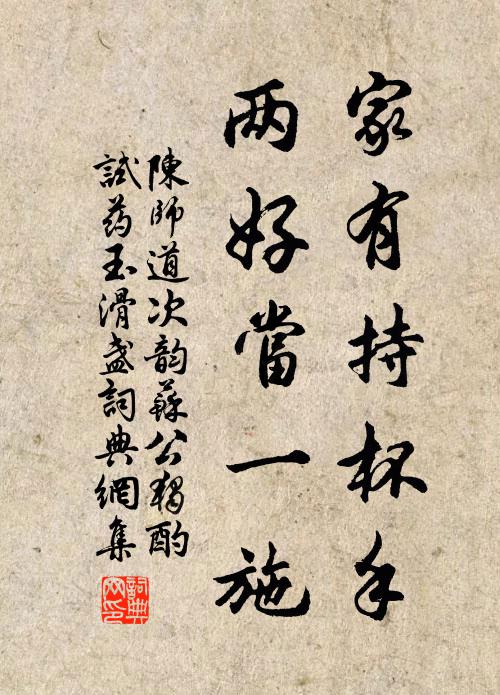 家有持杯手
两好當一施
陳師道次韵蘇公獨酌
試药玉滑盞詞典網集
詞典網印